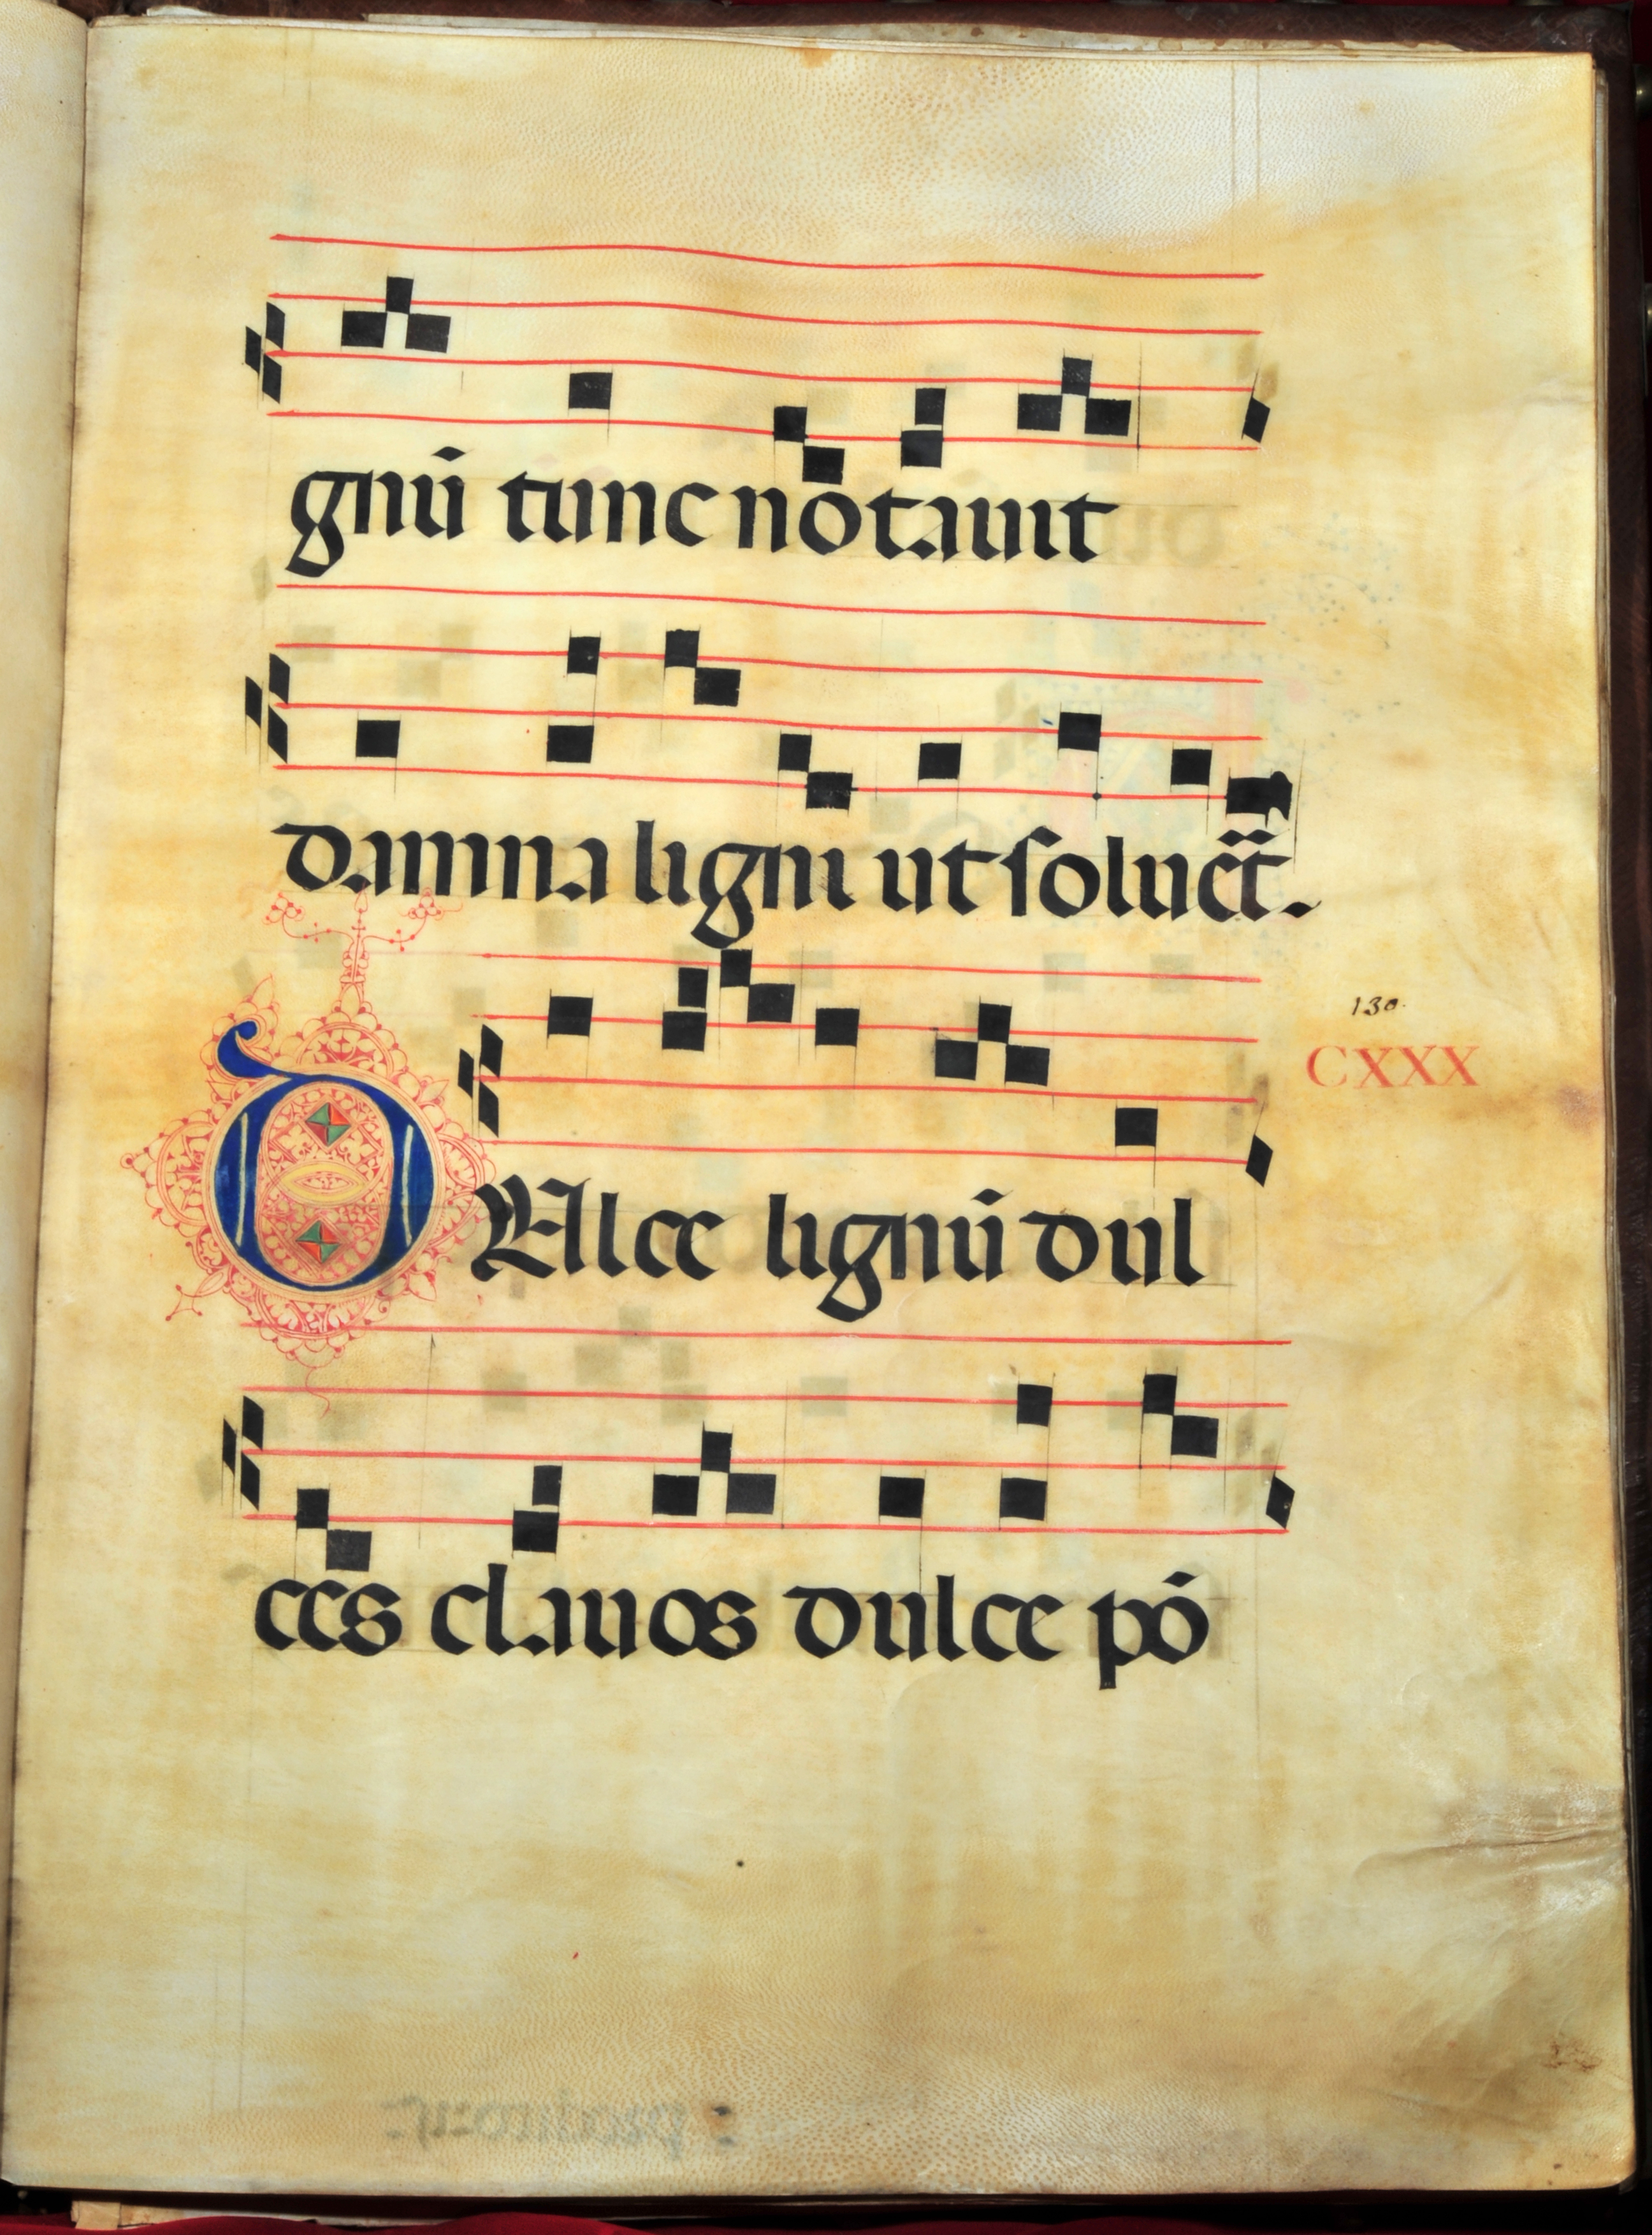 gnū tunc notauit
damna ligni ut solueret.
130.
CXXX
DUlce lignū dul
ces clauos dulce pō